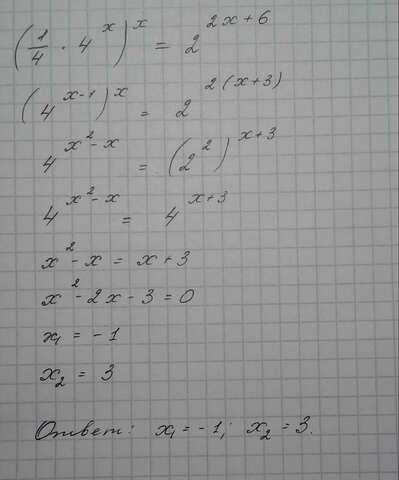 (1/4 · 4^x)^x = 2^(2x+6)
(4^(x-1))^x = 2^(2(x+3))
4^(x²-x) = (2²)^(x+3)
4^(x²-x) = 4^(x+3)
x² - x = x + 3
x² - 2x - 3 = 0
x₁ = -1
x₂ = 3
Ответ: x₁ = -1; x₂ = 3.